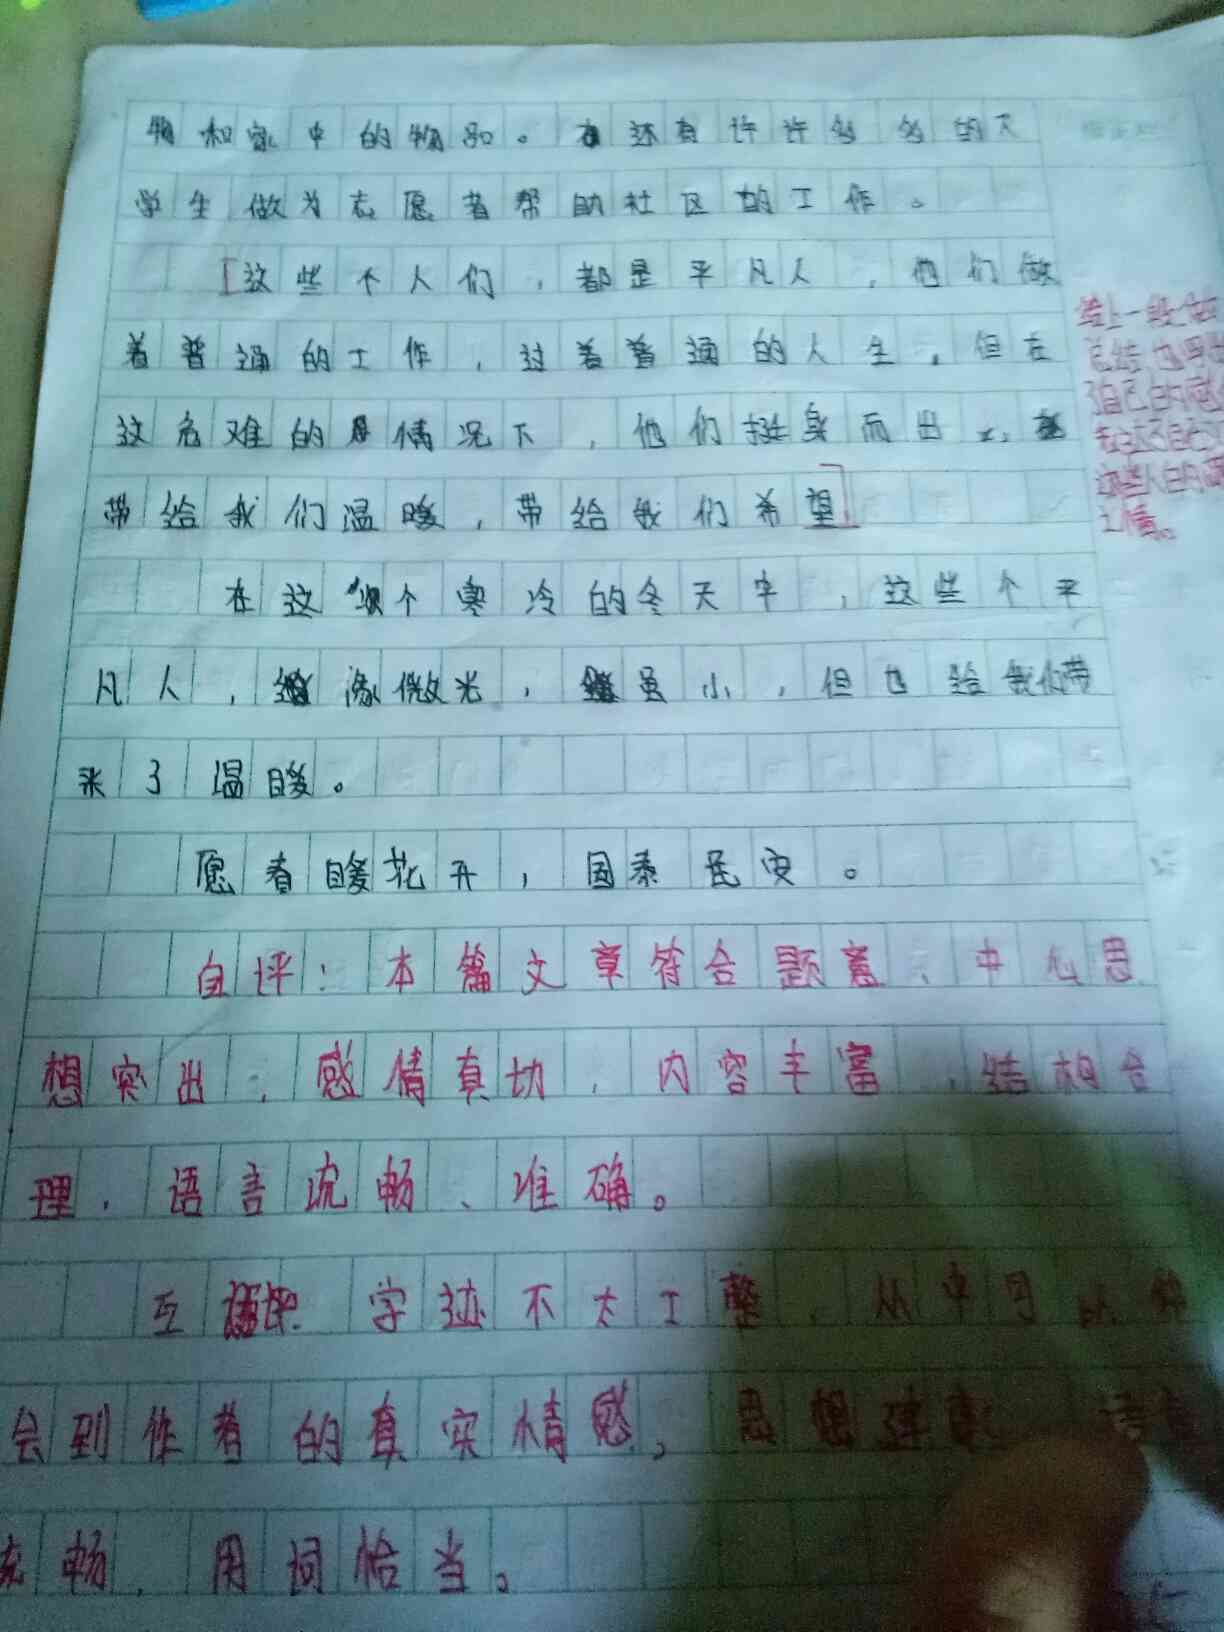 物和家中的物品。还有许许多多的大
学生做为志愿者帮助社区的工作。
[这些个人们，都是平凡人，他们做
着普通的工作，过着普通的人生，但在
这危难的情况下，他们挺身而出，
带给我们温暖，带给我们希望]
在这个寒冷的冬天中，这些个平
凡人，像微光，虽小，但也给我们带
来了温暖。
愿春暖花开，国泰民安。
给上一段
总结，也写出
了自己的感
这些人的
之情。
自评：本篇文章符合题意、中心思
想突出，感情真切，内容丰富，结构合
理，语言流畅、准确。
互评：字迹不太工整，从中可以体
会到作者的真实情感，思想健康，语言
流畅，用词恰当。